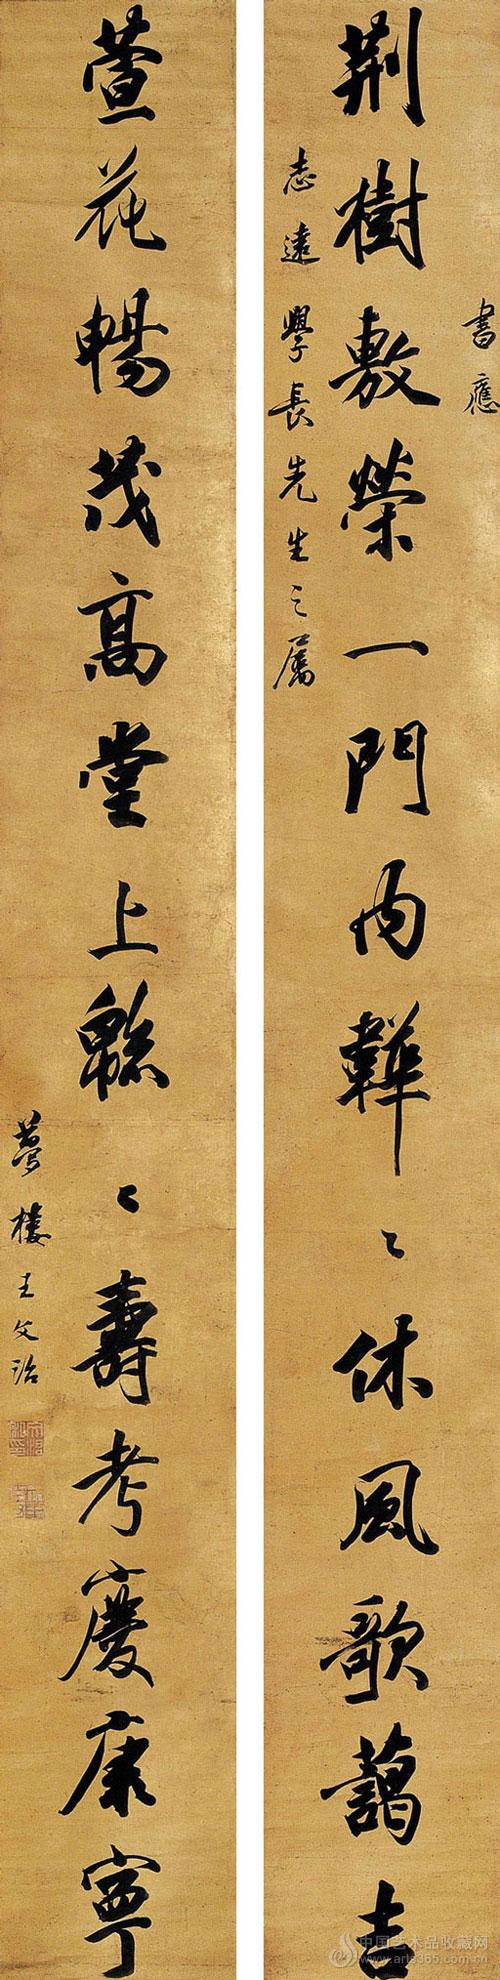 荊樹敷榮一門内韡〻休風歌藹吉
書應
志遠學長先生之屬
萱花暢茂高堂上緜〻壽考慶康寧
夢樓王文治
中国艺术品收藏网
www.arts365.com.cn